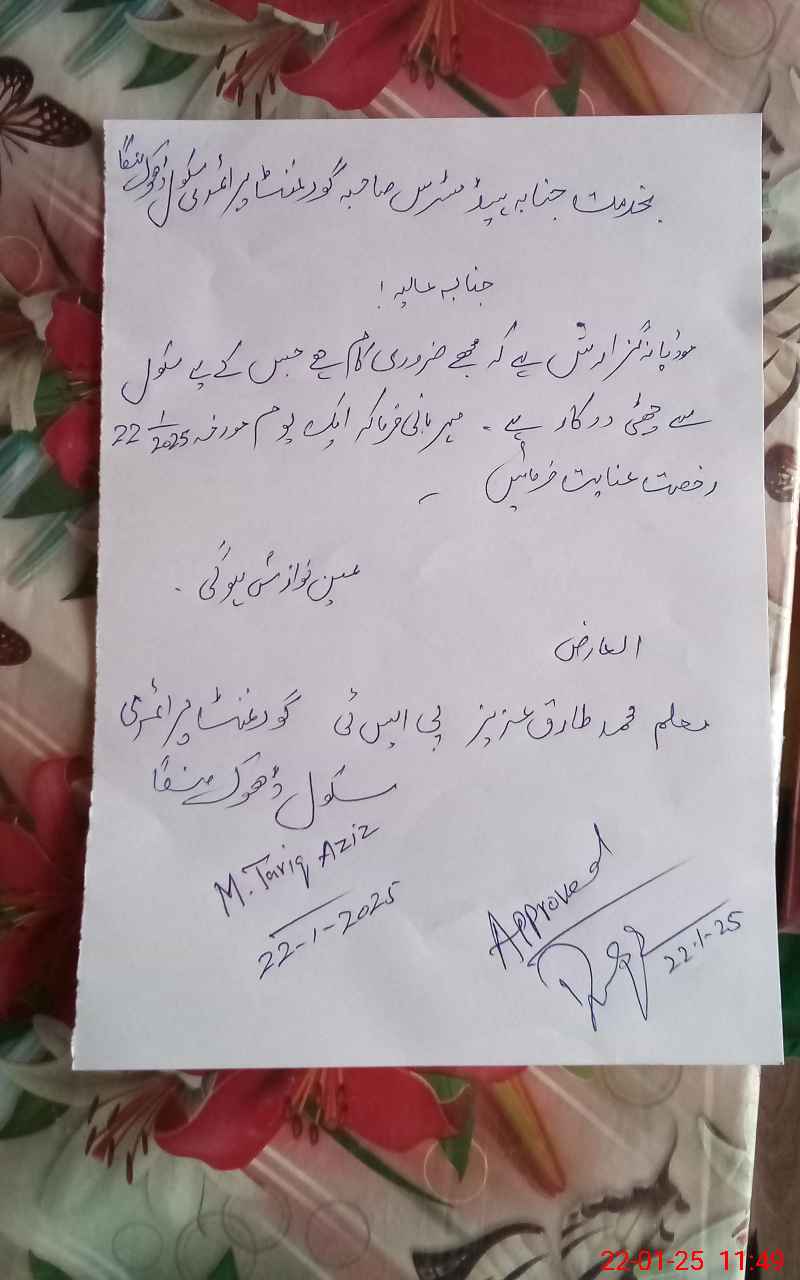 بخدمت جنابہ ہیڈ مسٹرس صاحبہ گورنمنٹ پرائمری سکول ڈھوک منگا
جنابہ عالیہ !
مؤدبانہ گزارش ہے کہ مجھے ضروری کام ہے جس کے لیے سکول
سے چھٹی درکار ہے ۔ مہربانی فرما کر ایک یوم مورخہ 22/1/2025
رخصت عنایت فرمائیں ۔
عین نوازش ہوگی ۔
العارض
معلم محمد طارق عزیز پی ایس ٹی گورنمنٹ پرائمری
سکول ڈھوک منگا
M. Tariq Aziz
22-1-2025
Approved
22-1-25
22-01-25 11:49